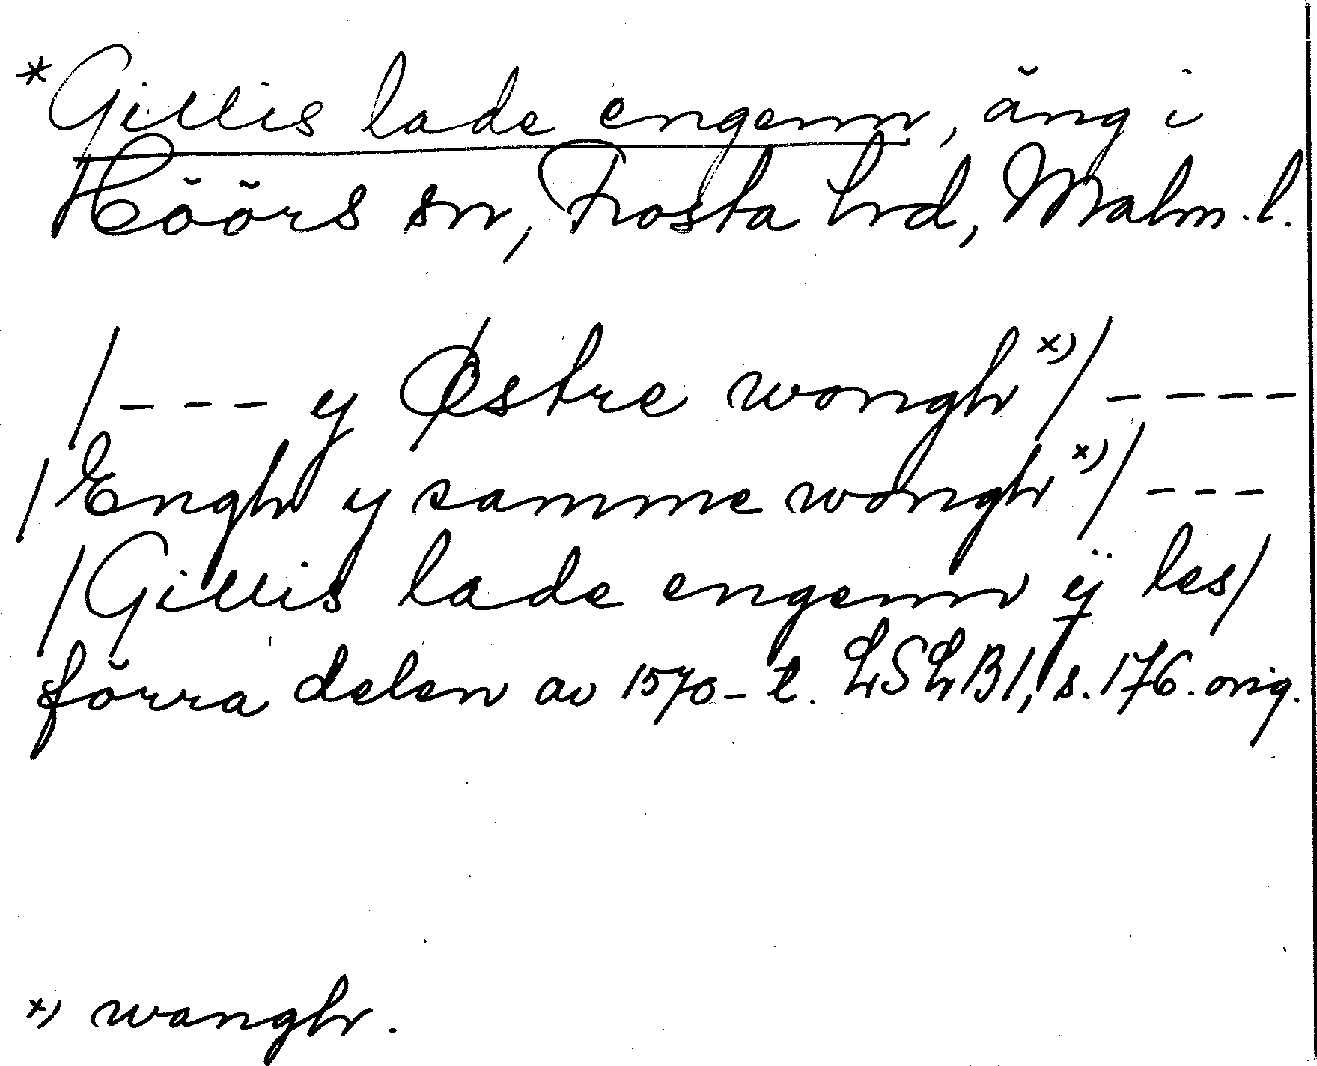 *Gillis lade engenn, äng i
Höörs sn, Frosta hrd, Malm. l.
/--- y Østre wongh x)/ ----
/Engh y samme wongh x)/ ---
/Gillis lade engenn ÿ les/
förra delen av 1570-t. LSLB1, s. 176. orig.
x) wangh.